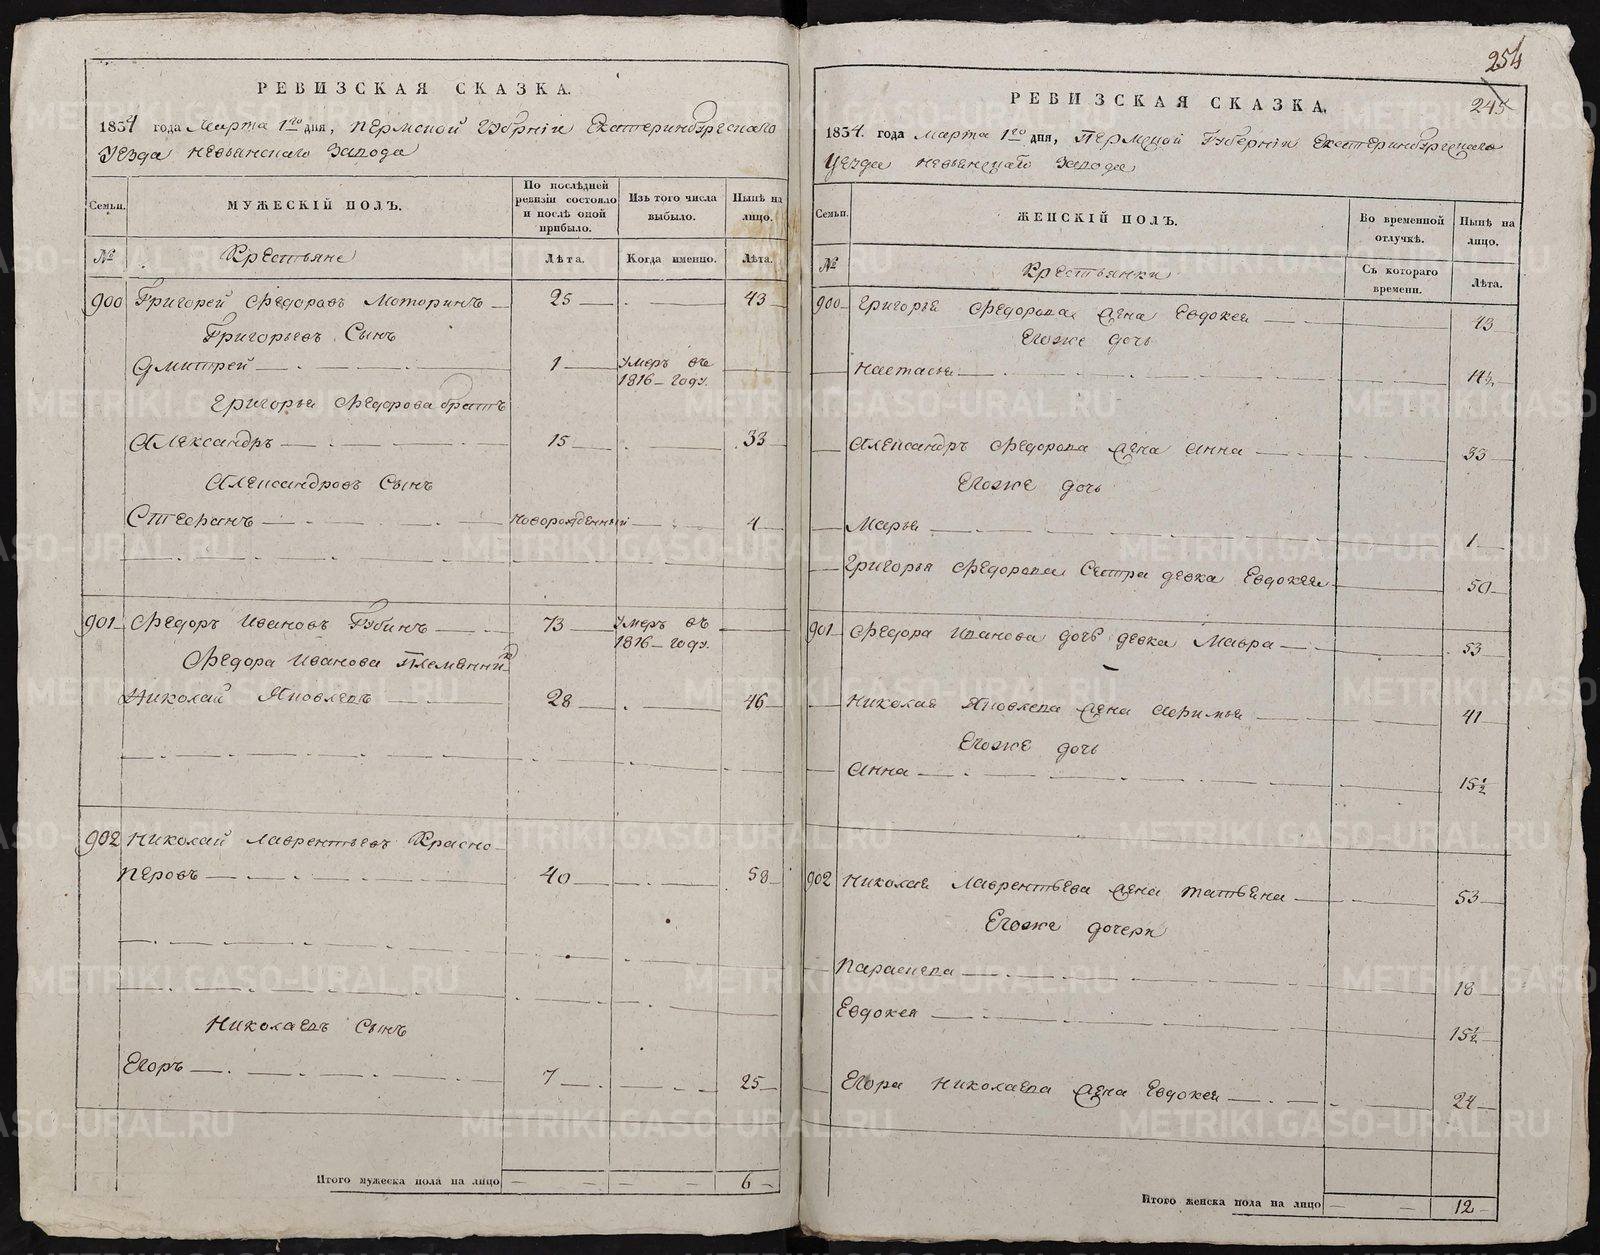 РЕВИЗСКАЯ СКАЗКА.
1834 года Марта 1го дня, Пермской Губернiи Екатеринбургскаго
Уезда Невьянскаго Завода
Семьи.
МУЖЕСКIЙ ПОЛЪ.
По послѣдней ревизiи состояло и послѣ оной прибыло.
Изъ того числа выбыло.
Нынѣ на лицо.
№
Крестьяне
Лѣта.
Когда именно.
Лѣта.
900 Григорей Федоровъ Моторинъ 25 43
Григорьевъ Сынъ
Дмитрей 1 Умеръ въ 1816 году.
Григорья Федорова братъ
Александръ 15 33
Александровъ Сынъ
Степанъ новорожденный 4
901 Федоръ Ивановъ Губинъ 73 Умеръ въ 1816 году.
Федора Иванова Племянникъ
Николай Яковлевъ 28 46
902 Николай Лаврентьевъ Красно
перовъ 40 58
Николаевъ Сынъ
Егоръ 7 25
Итого мужеска пола на лицо 6
254
245
РЕВИЗСКАЯ СКАЗКА.
1834. года Марта 1го дня, Пермской Губернiи Екатеринбургскаго
Уезда Невьянскаго Завода
Семьи.
ЖЕНСКIЙ ПОЛЪ.
Во временной отлучкѣ.
Нынѣ на лицо.
№
Крестьянки
Съ котораго времени.
Лѣта.
900 Григорья Федорова жена Евдокея 43
Егоже дочь
Настасья 14½
Александръ Федорова жена Анна 33
Егоже дочь
Марья 1
Григорья Федорова Сестра девка Евдокея 50
901 Федора Иванова дочь девка Мавра 53
Николая Яковлева жена Афимья 41
Егоже дочь
Анна 15½
902 Николая Лаврентьева жена Татьяна 53
Егоже дочери
Параскева 18
Евдокея 15½
Егора Николаева жена Евдокея 24
Итого женска пола на лицо 12
METRIKI.GASO-URAL.RU